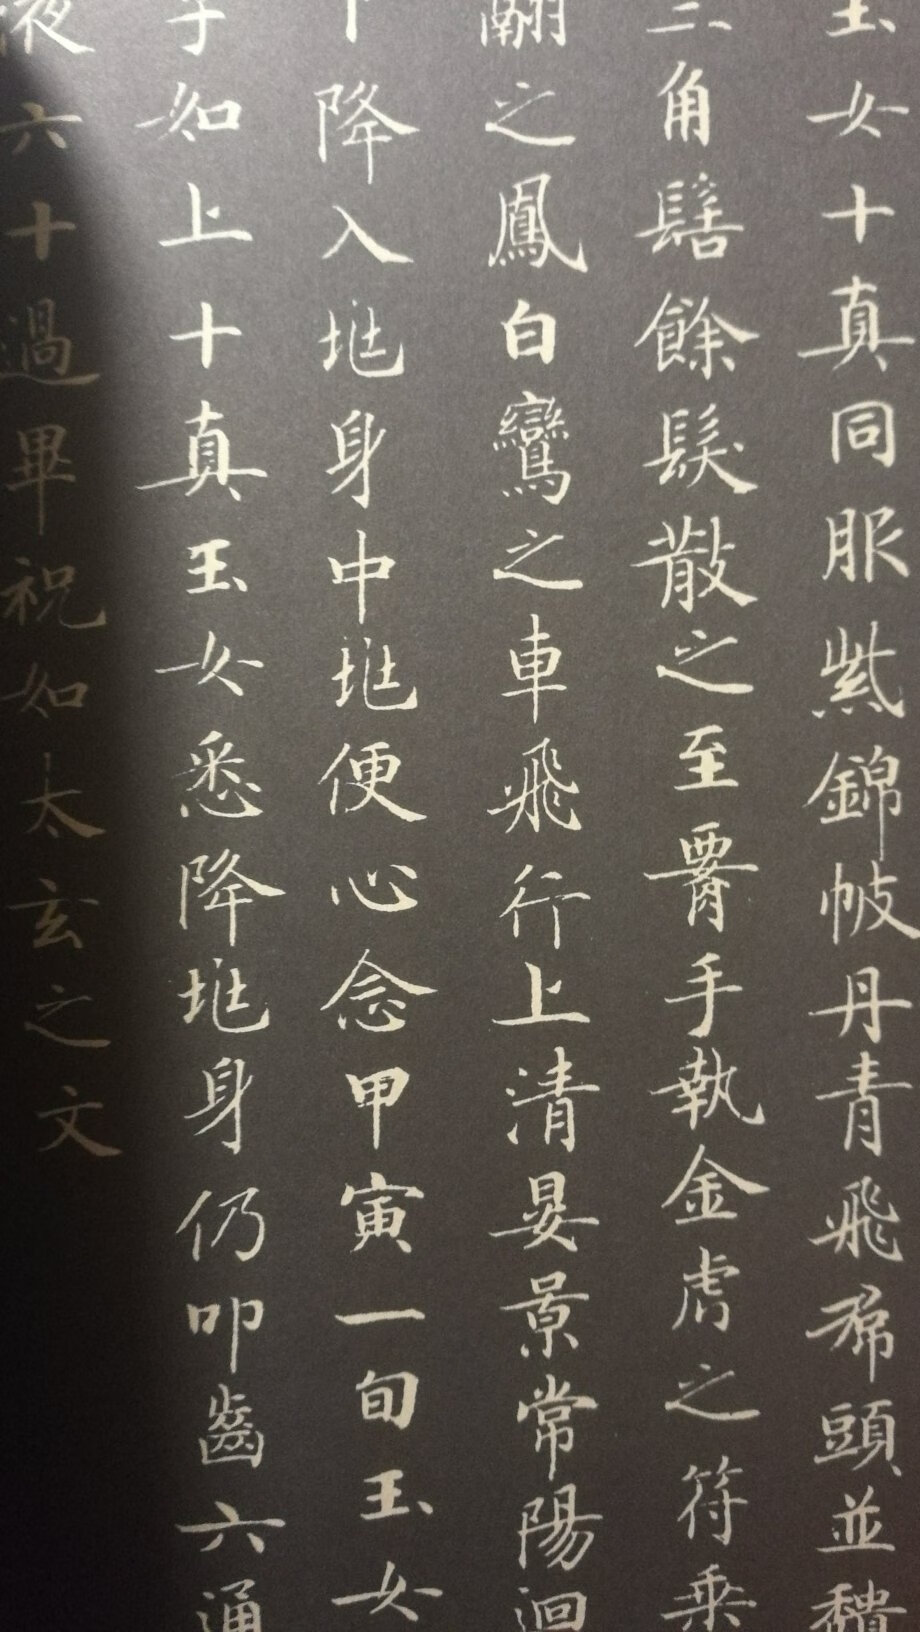 玉女十真同服紫錦帔丹青飛帬頭並積
三角髻餘髮散之至腰手執金虎之符乘
翮之鳳白鸞之車飛行上清晏景常陽迴
下降入地身中地便心念甲寅一旬玉女
字如上十真玉女悉降地身仍叩齒六通
液六十過畢祝如太玄之文